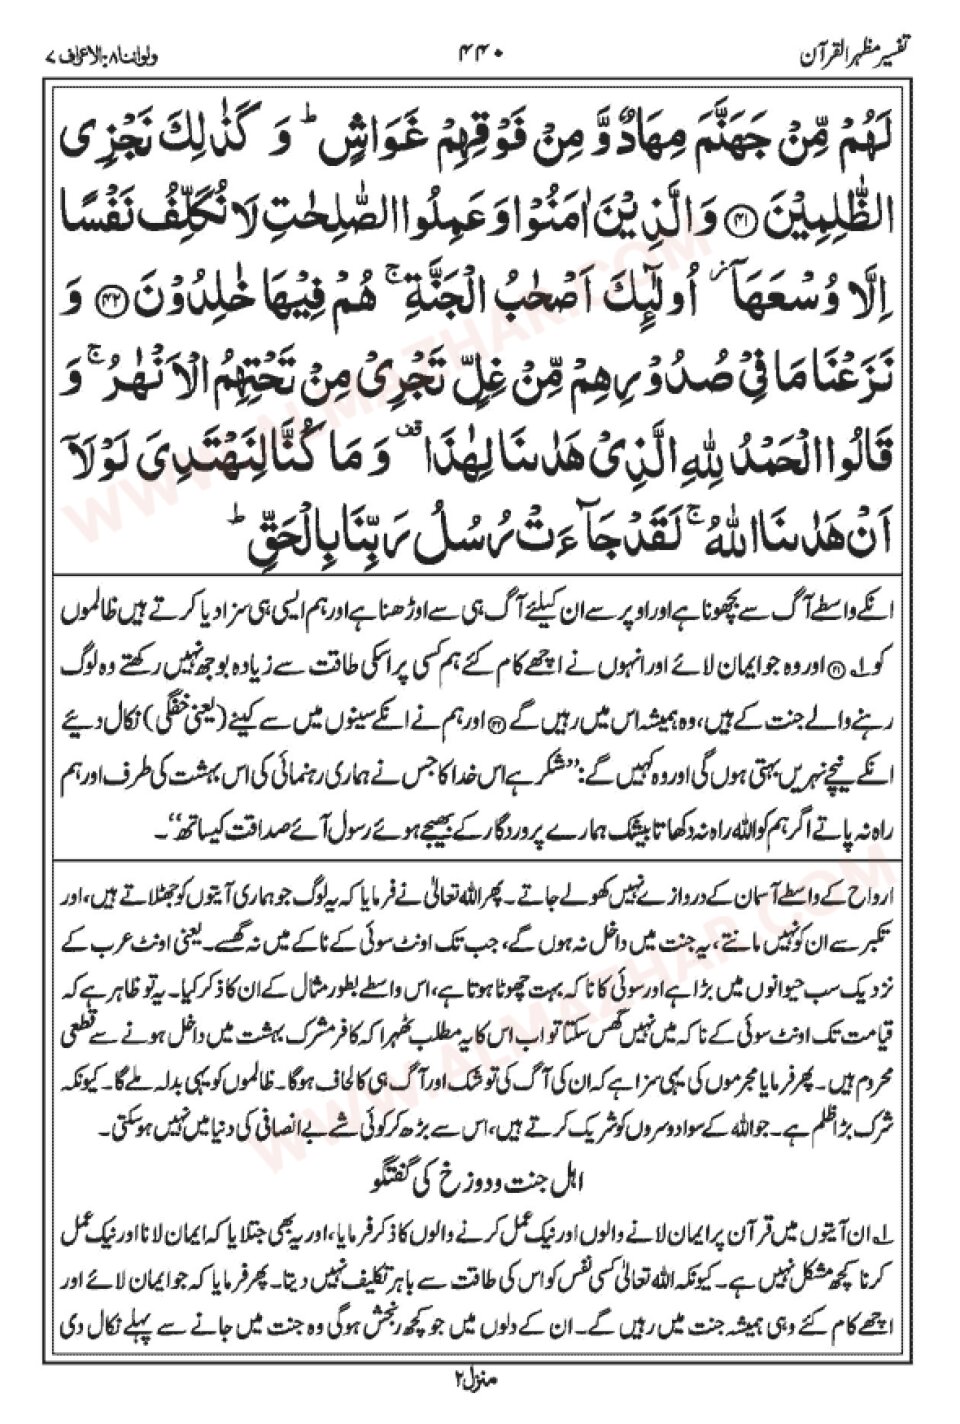 تفسیر مظہر القرآن ۴۴۰ ولواننا ۸: الاعراف ۷
لَهُمْ مِّنْ جَهَنَّمَ مِهَادٌ وَّ مِنْ فَوْقِهِمْ غَوَاشٍ ؕ وَ كَذٰلِكَ نَجْزِی
الظّٰلِمِیْنَ ﴿۴۱﴾ وَ الَّذِیْنَ اٰمَنُوْا وَ عَمِلُوا الصّٰلِحٰتِ لَا نُكَلِّفُ نَفْسًا
اِلَّا وُسْعَهَاۤ ؗ اُولٰٓئِكَ اَصْحٰبُ الْجَنَّةِ ۚ هُمْ فِیْهَا خٰلِدُوْنَ ﴿۴۲﴾ وَ
نَزَعْنَا مَا فِیْ صُدُوْرِهِمْ مِّنْ غِلٍّ تَجْرِیْ مِنْ تَحْتِهِمُ الْاَنْهٰرُ ۚ وَ
قَالُوا الْحَمْدُ لِلّٰهِ الَّذِیْ هَدٰىنَا لِهٰذَا قف وَ مَا كُنَّا لِنَهْتَدِیَ لَوْلَاۤ
اَنْ هَدٰىنَا اللّٰهُ ۚ لَقَدْ جَآءَتْ رُسُلُ رَبِّنَا بِالْحَقِّ ؕ
انکے واسطے آگ سے بچھونا ہے اور اوپر سے ان کیلئے آگ ہی سے اوڑھنا ہے اور ہم ایسی ہی سزا دیا کرتے ہیں ظالموں
کو ۱؎ ﴿۴۱﴾ اور وہ جو ایمان لائے اور انہوں نے اچھے کام کئے ہم کسی پر اسکی طاقت سے زیادہ بوجھ نہیں رکھتے وہ لوگ
رہنے والے جنت کے ہیں، وہ ہمیشہ اس میں رہیں گے ﴿۴۲﴾ اور ہم نے انکے سینوں میں سے کینے (یعنی خفگی) نکال دیئے
انکے نیچے نہریں بہتی ہوں گی اور وہ کہیں گے: ”شکر ہے اس خدا کا جس نے ہماری رہنمائی کی اس بہشت کی طرف اور ہم
راہ نہ پاتے اگر ہم کو اللہ راہ نہ دکھاتا بیشک ہمارے پروردگار کے بھیجے ہوئے رسول آئے صداقت کیساتھ“۔
ارواح کے واسطے آسمان کے دروازے نہیں کھولے جاتے۔ پھر اللہ تعالیٰ نے فرمایا کہ یہ لوگ جو ہماری آیتوں کو جھٹلاتے ہیں، اور
تکبر سے ان کو نہیں مانتے، یہ جنت میں داخل نہ ہوں گے، جب تک اونٹ سوئی کے ناکے میں نہ گھسے۔ یعنی اونٹ عرب کے
نزدیک سب حیوانوں میں بڑا ہے اور سوئی کا ناکہ بہت چھوٹا ہوتا ہے، اس واسطے بطور مثال کے ان کا ذکر کیا۔ یہ تو ظاہر ہے کہ
قیامت تک اونٹ سوئی کے ناکہ میں نہیں گھس سکتا تو اب اس کا یہ مطلب ٹھہرا کہ کافر مشرک بہشت میں داخل ہونے سے قطعی
محروم ہیں۔ پھر فرمایا مجرموں کی یہی سزا ہے کہ ان کی آگ کی توشک اور آگ ہی کا لحاف ہوگا۔ ظالموں کو یہی بدلہ ملے گا۔ کیونکہ
شرک بڑا ظلم ہے۔ جو اللہ کے سوا دوسروں کو شریک کرتے ہیں، اس سے بڑھ کر کوئی شے بے انصافی کی دنیا میں نہیں ہوسکتی۔
اہل جنت و دوزخ کی گفتگو
۱؎ ان آیتوں میں قرآن پر ایمان لانے والوں اور نیک عمل کرنے والوں کا ذکر فرمایا، اور یہ بھی جتلا یا کہ ایمان لانا اور نیک عمل
کرنا کچھ مشکل نہیں ہے۔ کیونکہ اللہ تعالیٰ کسی نفس کو اس کی طاقت سے باہر تکلیف نہیں دیتا۔ پھر فرمایا کہ جو ایمان لائے اور
اچھے کام کئے وہی ہمیشہ جنت میں رہیں گے۔ ان کے دلوں میں جو کچھ رنجش ہوگی وہ جنت میں جانے سے پہلے نکال دی
منزل ۲
WWW.ALMAZHAR.COM
WWW.ALMAZHAR.COM